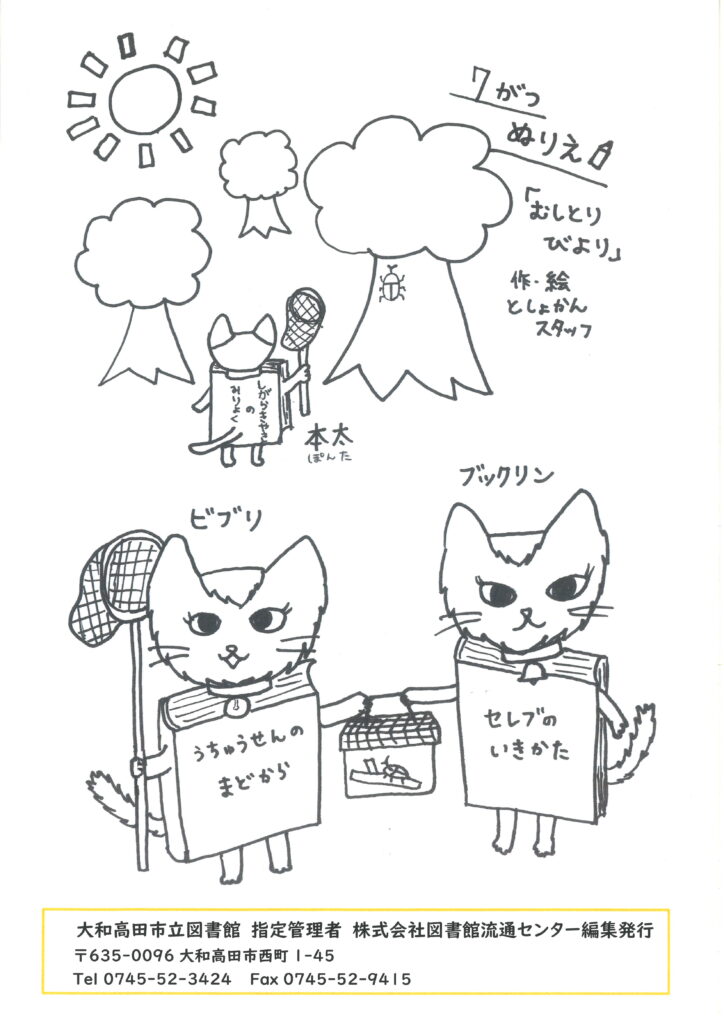 7がつ
ぬりえ
「むしとり
びより」
作・絵
としょかん
スタッフ
しがらきやき
の
みりょく
本太
ぽんた
ブックリン
ビブリ
うちゅうせんの
まどから
セレブの
いきかた
大和高田市立図書館 指定管理者 株式会社図書館流通センター編集発行
〒635-0096 大和高田市西町 1-45
Tel 0745-52-3424 Fax 0745-52-9415